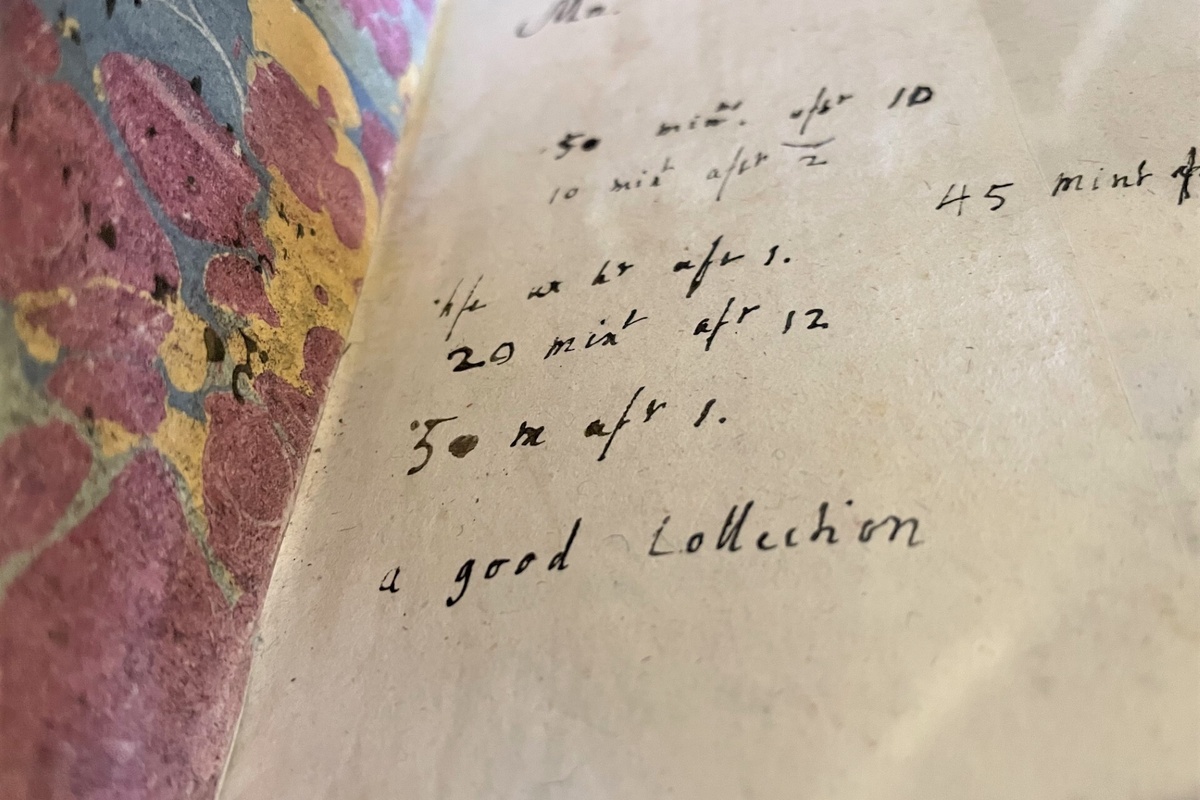 50 mint. aftr 10
10 mint aftr 2
45 mint
hr aftr 1.
20 mint aftr 12
50 m aftr 1.
a good Collection